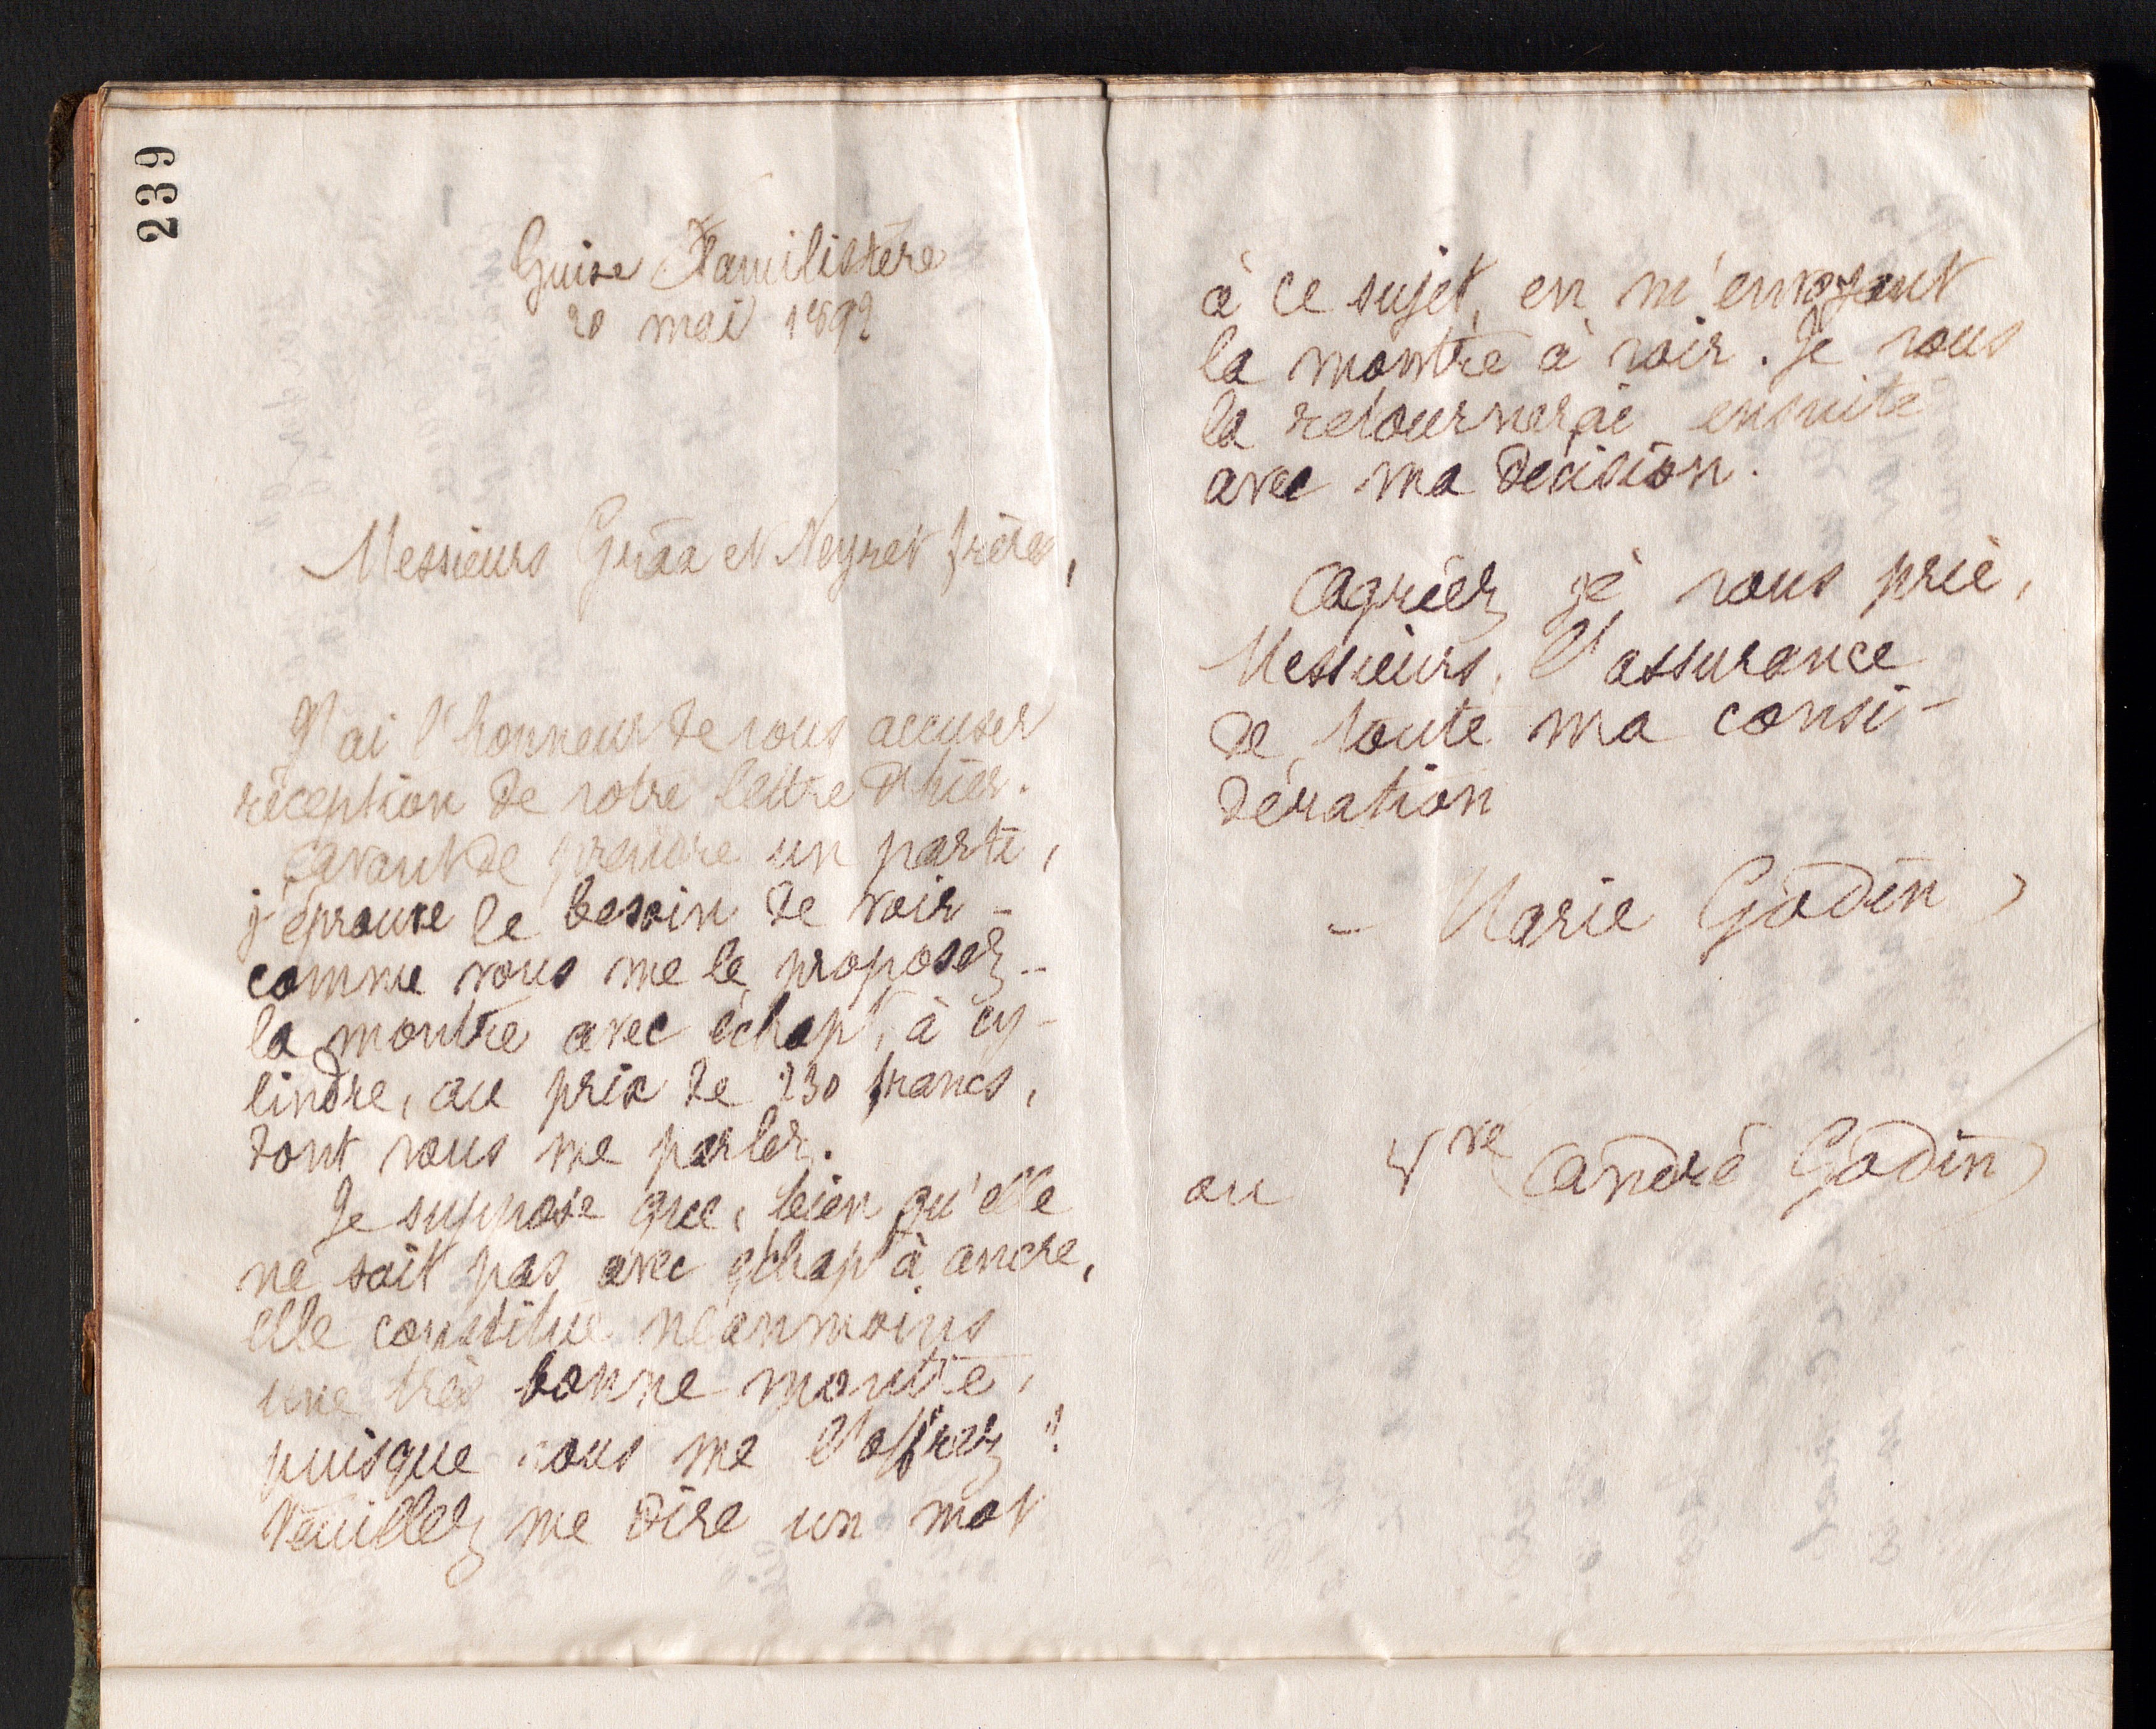 239
Guise Familistère
20 mai 1892
Messieurs Gráa et Neyret frères,
J'ai l'honneur de vous accuser
réception de votre lettre d'hier.
Avant de prendre un parti,
j'éprouve le besoin de voir -
comme vous me le proposez -
la montre avec échapt, à cy-
lindre, au prix de 230 francs,
dont vous me parlez.
Je suppose que, bien qu'elle
ne soit pas avec échapt à ancre,
elle constitue néanmoins
une très bonne montre,
puisque vous me l'offrez ?
Veuillez me dire un mot
à ce sujet, en m'envoyant
la montre à voir. Je vous
la retournerai ensuite
avec ma décision.
Agréez je vous prie,
Messieurs, l'assurance
de toute ma consi-
dération
- Marie Godin
ou Vve André Godin